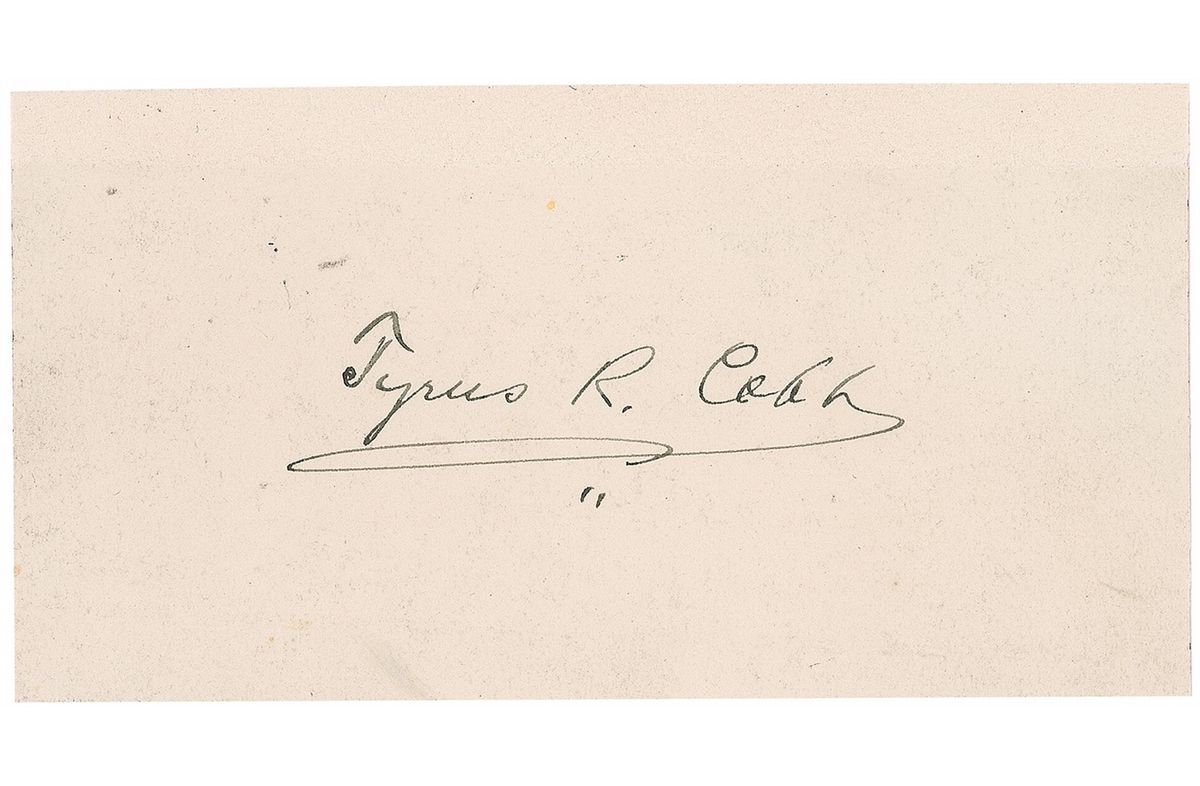 Tyrus R. Cobb
"